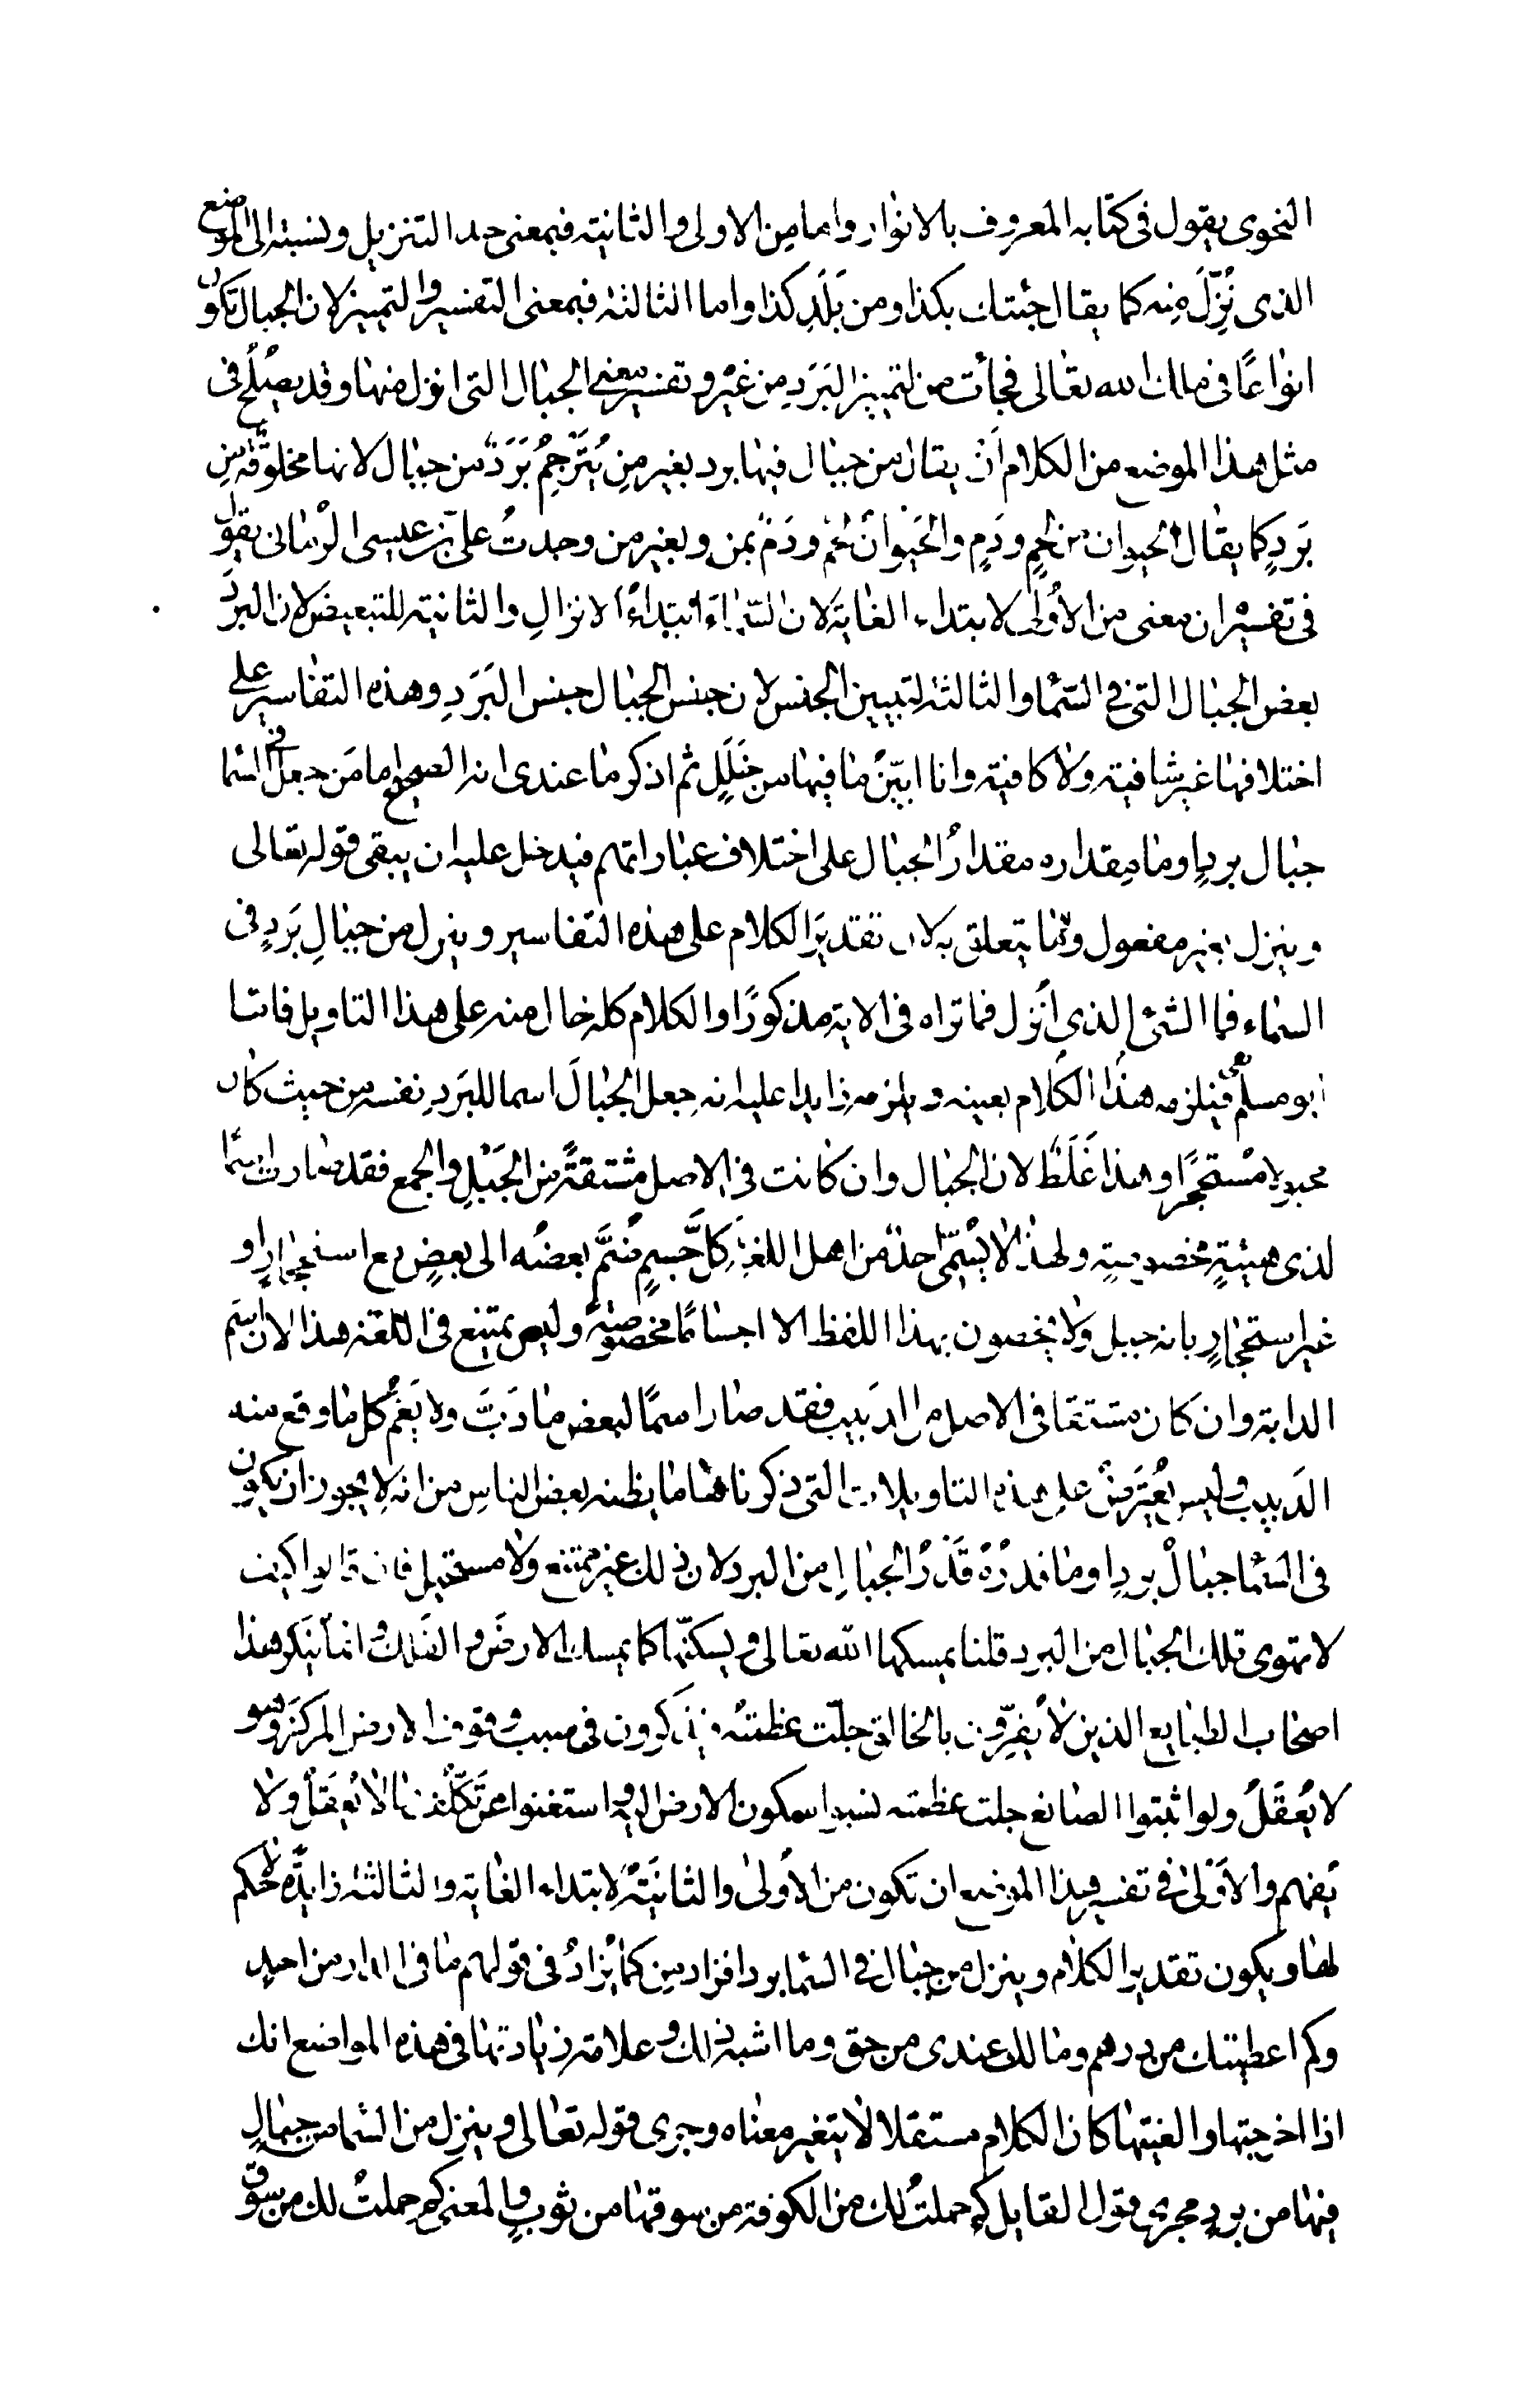 النحوى يقول فى كتابه المعروف بالانوار واما من الاولى والثانية فبمعنى حد التنزيل ونسبته الى الموضع
الذى نُزِّلَ مِنه كما يقال جئتك بكذا ومن بَلَدِ كذا واما الثالثه فبمعنى التفسير والتمييز لان الجبال تكون
انواعًا فى ملك الله تعالى فجأت من لتمييز البَرَدِ مِن غيره وتفسير معنى الجبال التى انزل منها وقد يصْلُح فى
مثل هذا الموضع من الكلام اَن يقال من جبال فيها برد بغير مِن يُتَرجِمُ بَرَدٌ من جبال لانها مخلوقة من
بَرَدٍ كما يقال الحيوان من لحمٍ ودَمٍ والحَيَوانُ لحْم ودَمٌ بمن وبغير من وجدتُ على بن عيسى الرمانى يقول
فى تفسيره ان معنى من الأولى لابتداء الغاية لان السّماءَ ابتداءُ الانزالِ والثانية للتبعيض لان البَردَ
بعض الجبال التى فى السّما والثالثة لتبيين الجنس لان جنس الجبال جنس البَرَدِ وهذه التفاسير على
اختلافها غير شافية ولا كافية وانا ابيّنُ ما فيها من خَلَلٍ ثم اذكر ما عندى انه الصحيح اما مَن جعل فى السّما
جبال بردٍ او ما مقداره مقدارُ الجبال على اختلاف عباراتهم فيدخل عليه ان يبقى قوله تعالى
وينزل بغير مفعول ولا ما يتعلق به لان تقديرَ الكلام على هذه التفاسير وينزل من جبالِ بَرَدٍ فى
السماء فما الشىء الذى اُنزل فما تراه فى الاية مذكورًا والكلام كله خال منه على هذا التاويل فاما
ابو مسلم فيلزمه هذا الكلام بعينه ويلزمه زايدا عليه انه جعل الجبالَ اسما للبَرَدِ نفسه من حيث كان
مجبولا مُستحجرًا وهذا غَلَطٌ لان الجبال وان كانت فى الاصل مشتقةً من الجَبْلِ والجمع فقد صارت اسمًا
لذى هيئةٍ مخصوصةٍ ولهذا لا يُسَمّى احدٌ من اهل اللغة كلَّ جسمٍ ضُمَّ بعضُه الى بعضٍ مع استحجارٍ او
غير استحجارٍ بانه جبل ولا يخصون بهذا اللفظ الا اجسامًا مخصوصةً وليس يمتنع فى اللغة هذا لان اسم
الدابة وان كان مشتقا فى الاصل من الدَبيب فقد صار اسمًا لبعض ما دَبَّ ولا يَعُمُّ كل ما وقع منه
الدَبيب وليس يُعتَرضُ على هذه التاويلات التى ذكرناها ما يظنه بعض الناس من انه لا يجوز ان يكون
فى السّما جبالُ بردٍ او ما قدرُه قَدْرُ الجبال من البرد لان ذلك غير ممتنع ولا مستحيل فان قالوا كيف
لا تهوى تلك الجبال من البرد قلنا يمسكها الله تعالى ويسكنّها كما يمسك الارضَ والفَلك وانما ينكر هذا
اصحاب الطبايع الذين لا يُقِرّون بالخالق جلّت عظمته فيذكرون فى سبب وقوف الارض المركزَ وهو
لا يُعقَلُ ولو اثبتوا الصانع جلت عظمته لنسبوا سكون الارض اليه واستغنوا عن تكلّف ما لا يُعقَل ولا
يُفهم والأَوْلى فى تفسير هذا الموضع ان تكون من الأولى والثانيَةُ لابتداء الغاية والثالثه زايدةً لا حكم
لها ويكون تقدير الكلام وينزل من جبال فى السّما بردا فزاد مِن كما يُزادُ فى قولهم ما فى الدار من احدٍ
وكم اعطيتك من درهم وما لك عندى من حق وما اشبه ذلك وعلامة زيادتها فى هذه المواضع انك
اذا اخرجتها والغيتها كان الكلام مستقلا لا يتغير معناه وجرى قوله تعالى وينزل من السّما من جبالٍ
فيها من بردٍ مجرى قول القايل كم حملتُ لك من الكوفة من سوقها من ثوبٍ والمعنى كم حملتُ لك من سوق